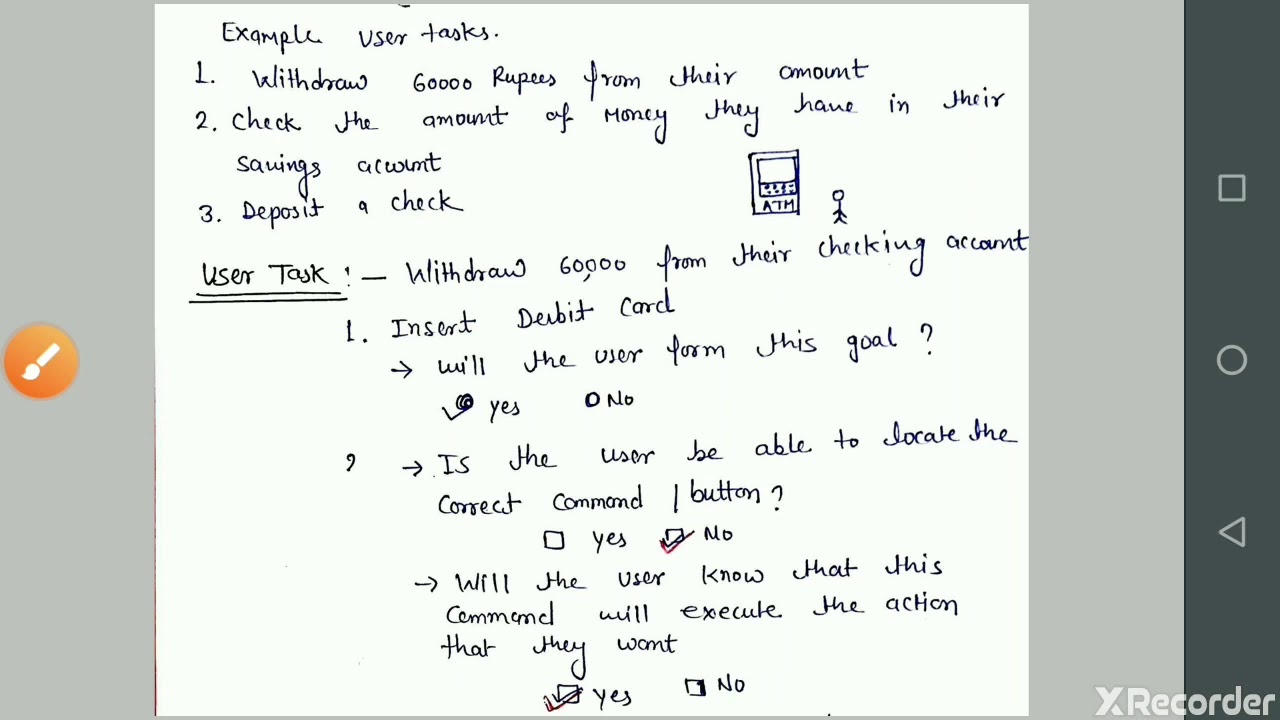 Example user tasks.
1. Withdraw 60000 Rupees from their amount
2. Check the amount of money they have in their
savings account
3. Deposit a check
ATM
User Task :- Withdraw 60,000 from their checking account
1. Insert Debit Card
→ will the user form this goal ?
yes No
? → Is the user be able to locate the
correct command / button?
yes No
→ Will the user know that this
Command will execute the action
that they want
yes No
XRecorder